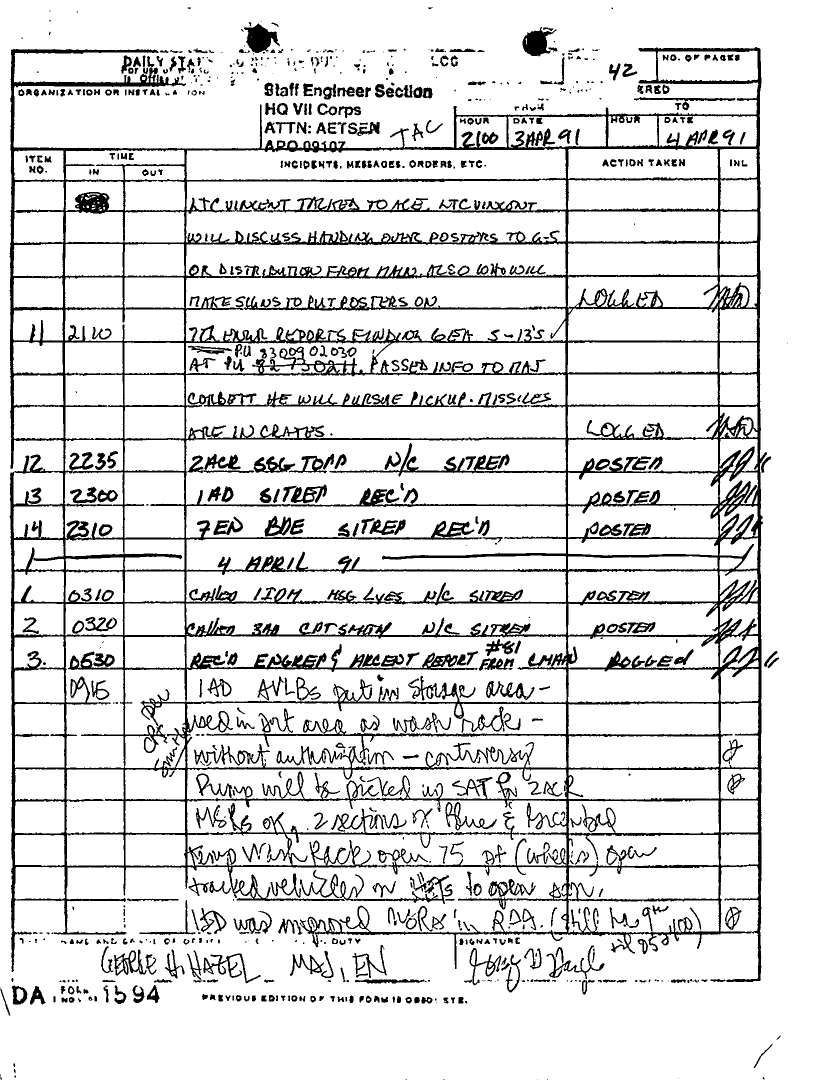 DAILY STAF
LOG
42
NO. OF PAGES
ORGANIZATION OR INSTALLATION
Staff Engineer Section
HQ VII Corps
ATTN: AETSEN
APO 09107
TAC
FROM
TO
HOUR DATE HOUR DATE
2100 3 APR 91 4 APR 91
ITEM NO.
TIME
IN OUT
INCIDENTS, MESSAGES, ORDERS, ETC.
ACTION TAKEN
INL
LTC VINCENT TALKED TO ACE. LTC VINCENT
WILL DISCUSS HANDING OVER POSTERS TO G-5
OR DISTRIBUTION FROM MAIN. ALSO WHO WILL
MAKE SIGNS TO PUT POSTERS ON. LOGGED
11 2110 7TH ENGR REPORTS FINDING 6 EA S-13'S
PU 8300902030
AT PU. PASSED INFO TO MAJ
CORBETT HE WILL PURSUE PICKUP. MISSILES
ARE IN CRATES. LOGGED
12 2235 2ACR SSG TODD N/C SITREP POSTED
13 2300 1AD SITREP REC'D POSTED
14 2310 7EN BDE SITREP REC'D POSTED
4 APRIL 91
1. 0310 CALLED 1IDM MSG LVES N/C SITREP POSTED
2 0320 CALLED 3AD CPT SMITH N/C SITREP POSTED
3. 0530 REC'D ENGREP & ARCENT REPORT #81 FROM CMAIN LOGGED
0915 1AD AVLBs put in storage area -
used in port area as wash rack -
without authorization - controversy
Pump will be picked up SAT for 2ACR
MSRs ok, 2 sections of Blue & Green bad
temp Wash Rack open 75 pt (wheels) open
tracked vehicles on HETs to open
was improved MSRs in RAA. (still
NAME AND GRADE OF DUTY
GEORGE H. HAZEL MAJ, EN
SIGNATURE
DA FORM 1594
PREVIOUS EDITION OF THIS FORM IS OBSOLETE.